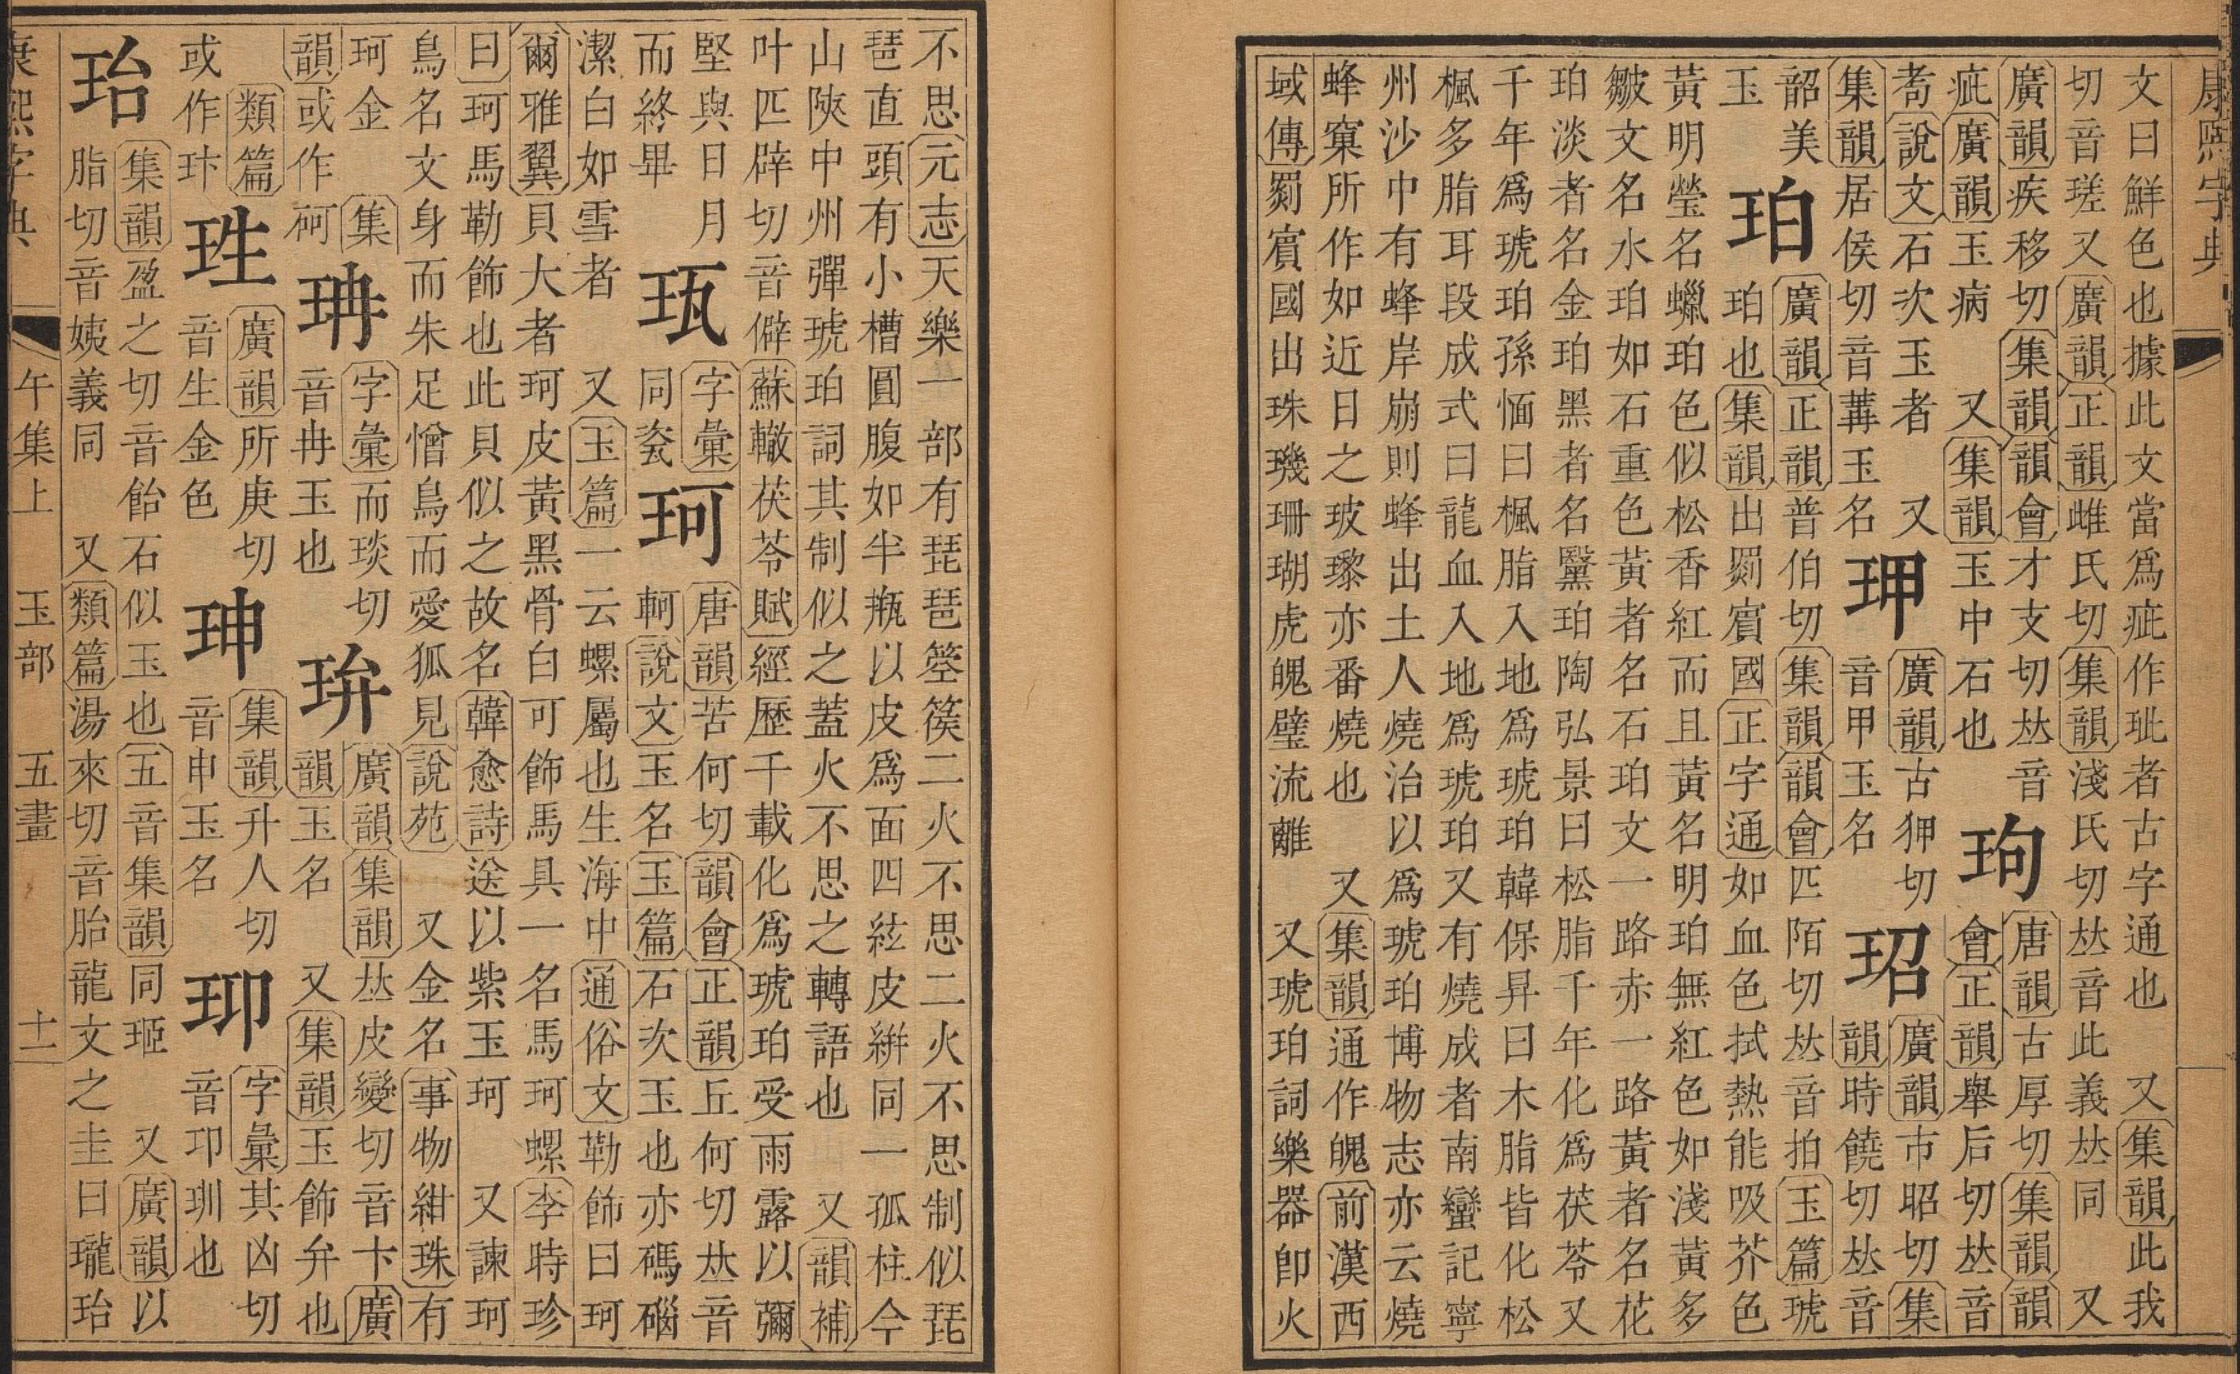 康熙字典
文曰鮮色也據此文當爲疵作玼者古字通也 又集韻此我
切音瑳又廣韻正韻雌氏切集韻淺氏切𠀤音此義𠀤同 又
廣韻疾移切集韻韻會才支切𠀤音
疵廣韻玉病 又集韻玉中石也
玽
唐韻古厚切集韻韻
會正韻舉后切𠀤音
耇說文石次玉者 又
集韻居侯切音冓玉名
玾
廣韻古狎切
音甲玉名
玿
廣韻市昭切集
韻時饒切𠀤音
韶美
玉
珀
廣韻正韻普伯切集韻韻會匹陌切𠀤音拍玉篇琥
珀也集韻出罽賓國正字通如血色拭熱能吸芥色
黃明瑩名蠟珀色似松香紅而且黃名明珀無紅色如淺黃多
皺文名水珀如石重色黃者名石珀文一路赤一路黃者名花
珀淡者名金珀黑者名瑿珀陶弘景曰松脂千年化爲茯苓又
千年爲琥珀孫愐曰楓脂入地爲琥珀韓保昇曰木脂皆化松
楓多脂耳段成式曰龍血入地爲琥珀又有燒成者南蠻記寧
州沙中有蜂岸崩則蜂出土人燒治以爲琥珀博物志亦云燒
蜂窠所作如近日之玻瓈亦番燒也 又集韻通作魄前漢西
域傳罽賓國出珠璣珊瑚虎魄璧流離 又琥珀詞樂器卽火
不思元志天樂一部有琵琶箜篌二火不思二火不思制似琵
琶直頭有小槽圓腹如半甁以皮爲面四絃皮絣同一孤柱今
山陝中州彈琥珀詞其制似之蓋火不思之轉語也 又韻補
叶匹辟切音僻蘇轍茯苓賦經歷千載化爲琥珀受雨露以彌
堅與日月
而終畢
珁
字彙
同瓷
珂
唐韻苦何切韻會正韻丘何切𠀤音
軻說文玉名玉篇石次玉也亦碼碯
潔白如雪者 又玉篇一云螺屬也生海中通俗文勒飾曰珂
爾雅翼貝大者珂皮黃黑骨白可飾馬具一名馬珂螺李時珍
曰珂馬勒飾也此貝似之故名韓愈詩送以紫玉珂 又諫珂
鳥名文身而朱足憎鳥而愛狐見說苑 又金名事物紺珠有
珂金
集
韻或作
砢
珃
字彙而琰切
音冉玉也
玣
廣韻集韻𠀤皮變切音卞廣
韻玉名 又集韻玉飾弁也
類篇
或作玤
珄
廣韻所庚切
音生金色
珅
集韻升人切
音申玉名
㺷
字彙其凶切
音卭玔也
珆
集韻盈之切音飴石似玉也五音集韻同㺿 又廣韻以
脂切音姨義同 又類篇湯來切音胎龍文之圭曰瓏珆
康熙字典 午集上 玉部 五畫 十一